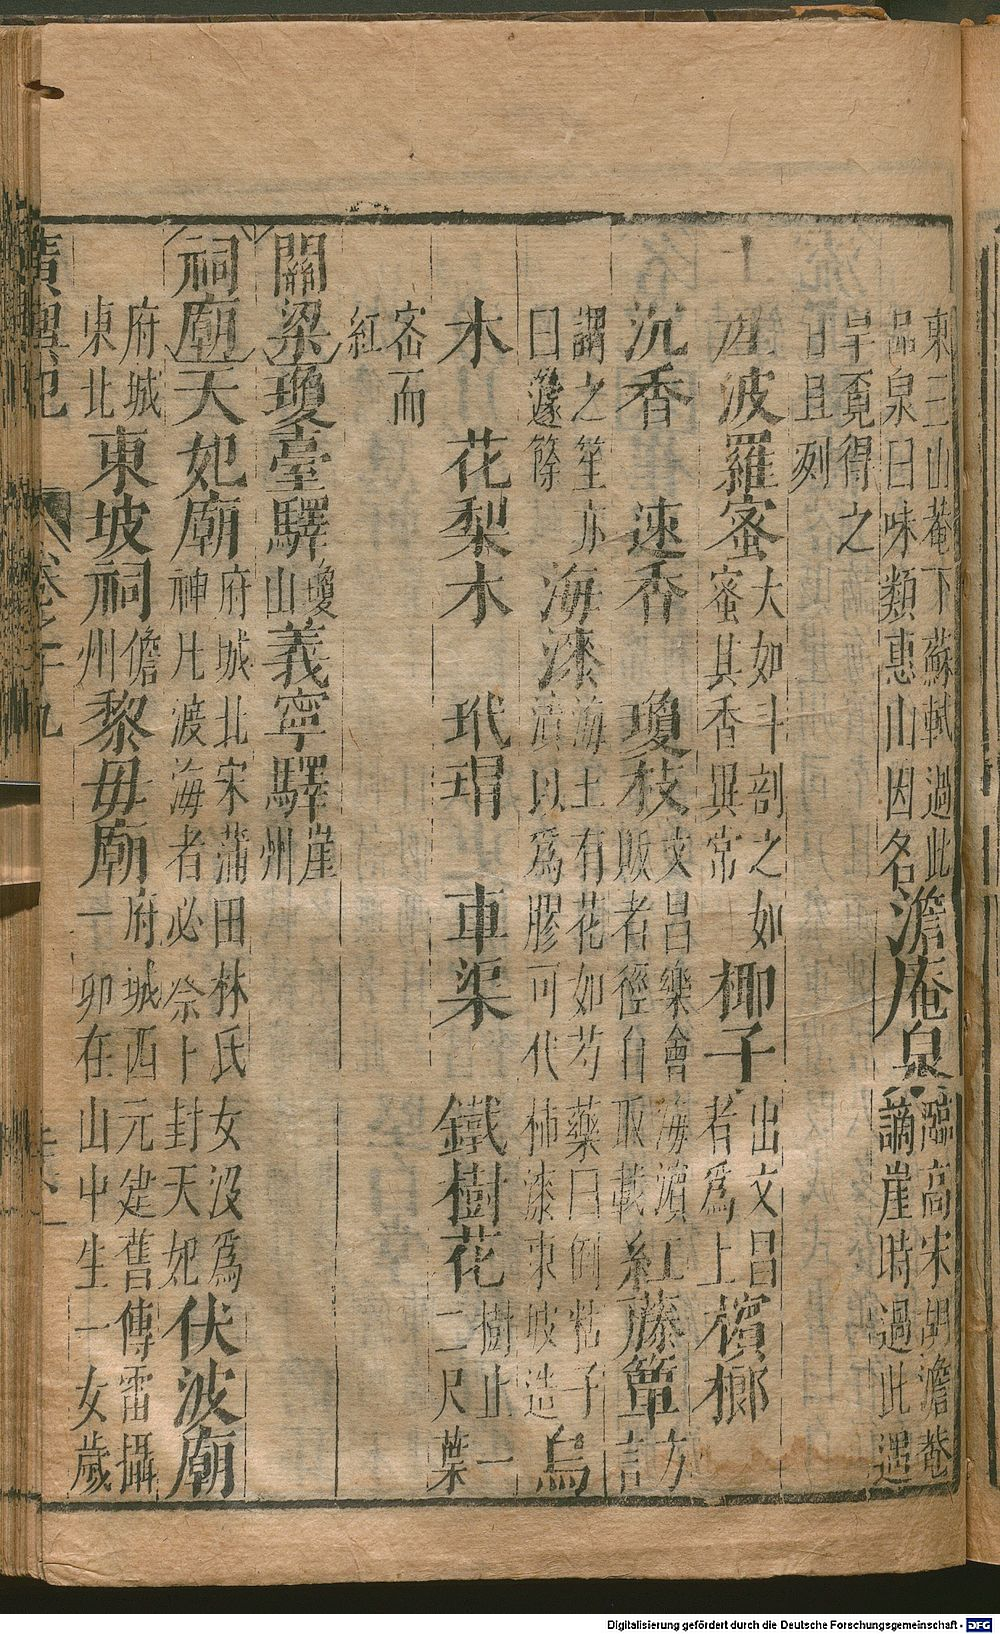 東三山菴下蘇軾過此
品泉曰味類惠山因名澹庵泉臨高宋胡澹菴
謫崖時過此遇
旱覓得之
甘且冽
土產波羅蜜大如斗剖之如
蜜其香異常 椰子出文昌
者爲上檳榔
沉香 速香 瓊枝文昌樂會海濱
販者徑自取載紅藤簟方言
謂之笙亦
曰籧篨 海漆海上有花如芍藥曰倒粘子
漬以爲膠可代柿漆東坡造烏
木 花梨木 玳瑁 車渠 鐵樹花樹止一
二尺葉
密而
紅
關梁瓊臺驛瓊山義寧驛崖州
祠廟天妃廟府城北宋蒲田林氏女沒爲
神凡渡海者必祭卜封天妃伏波廟
府城
東北東坡祠儋州黎毋廟府城西元建舊傳雷攝
一卵在山中生一女歲
廣輿記 卷之十九
Digitalisierung gefördert durch die Deutsche Forschungsgemeinschaft - DFG